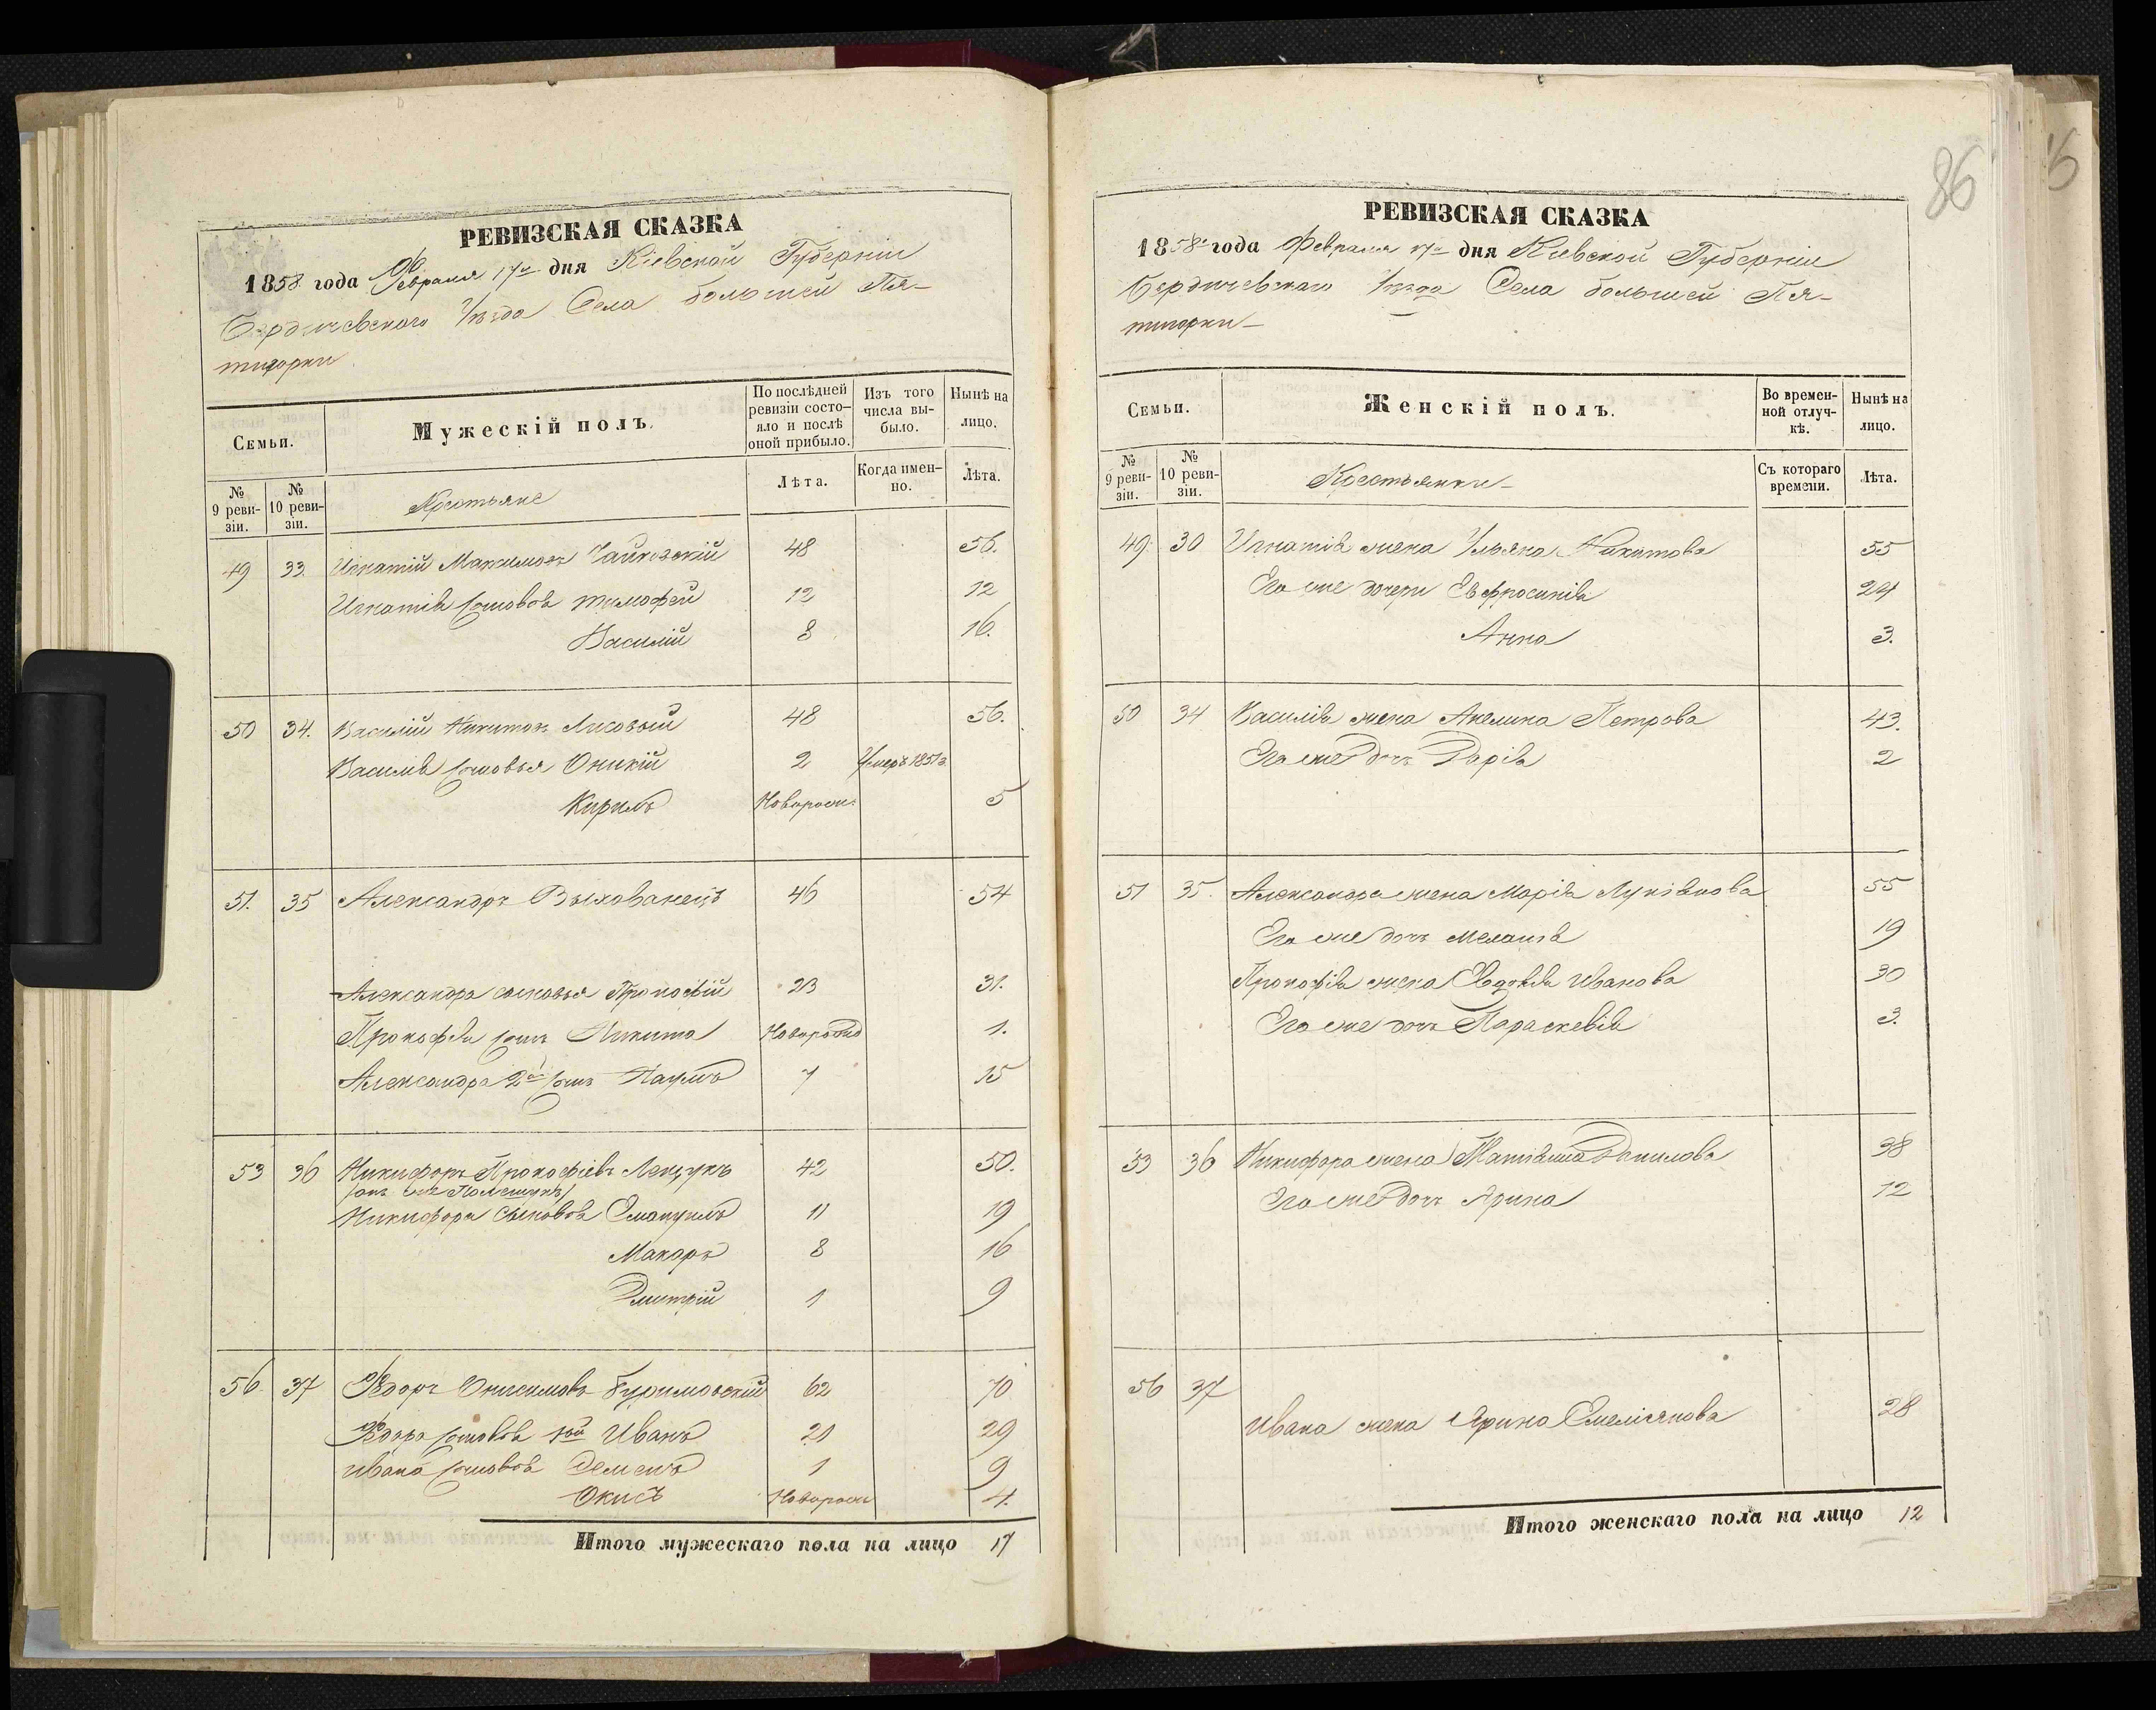 РЕВИЗСКАЯ СКАЗКА
1858 года Февраля 17го дня Кіевской Губерніи
Бердичевскаго Уѣзда Села большей Пя-
тигорки
Семьи.
Мужескій полъ.
По послѣдней ревизіи состо- яло и послѣ оной прибыло.
Изъ того числа вы- было.
Нынѣ на лицо.
№ 9 реви- зіи.
№ 10 реви- зіи.
Крестьяне
Лѣта.
Когда имен- но.
Лѣта.
49 33. Игнатій Максимовъ Чайковскій 48 56.
Игнатія сыновья Тимофей 12 12
Василій 8 16.
50 34. Василій Никитовъ Лисовый 48 56.
Василія сыновья Оникій 2 Умеръ 1851 г.
Кирилъ Новорож. 5
51. 35 Александръ Выхованецъ 46 54
Александра сыновья Прокофій 23 31.
Прокофія сынъ Никита Новорожд 1.
Александра 2й сынъ Наумъ 7 15
53 36 Никифоръ Прокофіевъ Лещукъ 42 50.
/онъ же Полещукъ/
Никифора сыновья Емануилъ 11 19
Макаръ 8 16
Дмитрій 1 9
56. 37 Ѳедоръ Онисимовъ Буримовскій 62 70
Ѳедора сыновья 1ый Иванъ 21 29
Ивана сыновья Семенъ 1 9
Окисъ Новорож 4.
Итого мужескаго пола на лицо 17
86
РЕВИЗСКАЯ СКАЗКА
1858 года Февраля 17го дня Кіевской Губерніи
Бердичевскаго Уѣзда Села большей Пя-
тигорки
Семьи.
Женскій полъ.
Во времен- ной отлуч- кѣ.
Нынѣ на лицо.
№ 9 реви- зіи.
№ 10 реви- зіи.
Крестьянки
Съ котораго времени.
Лѣта.
49. 30 Игнатія жена Ульяна Никитова 55
Его же дочери Евфросинія 24
Анна 3.
50 34 Василія жена Акелина Петрова 43.
Его же дочь Дарія 2
51 35. Александра жена Марія Лукіянова 55
Его же дочь Меланія 19
Прокофія жена Евдокія Иванова 30
Его же дочь Параскевія 3.
53 36 Никифора жена Татіянна Данилова 38
Его же дочь Арина 12
56 37
Ивана жена Ярина Емеліянова 28
Итого женскаго пола на лицо 12